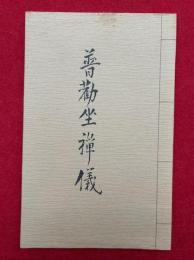 普勸坐禪儀